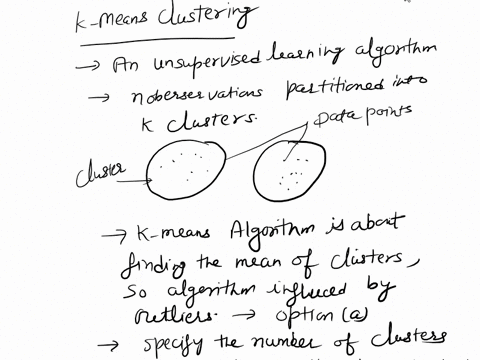 k-means clustering
→ An unsupervised learning algorithm
→ noberservations partitioned into
k clusters.
Data points
cluster
→ k-means Algorithm is about
finding the mean of clusters,
so algorithm influced by
outliers. → option (a)
→ specify the number of clusters